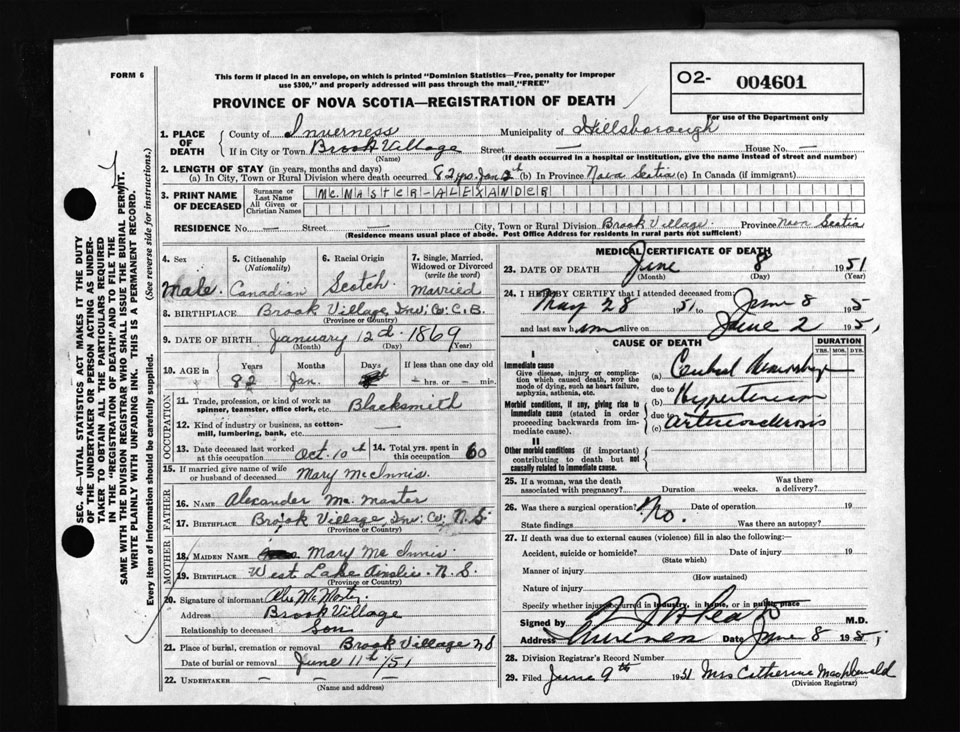 FORM 6
This form if placed in an envelope, on which is printed "Dominion Statistics—Free, penalty for improper
use $300," and properly addressed will pass through the mail "FREE"
O2- 004601
For use of the Department only
PROVINCE OF NOVA SCOTIA—REGISTRATION OF DEATH
1. PLACE OF DEATH
County of Inverness Municipality of Hillsborough
If in City or Town Brook Village Street — House No. —
(Name) (If death occurred in a hospital or institution, give the name instead of street and number)
2. LENGTH OF STAY (in years, months and days)
(a) City, Town or Rural Division where death occurred 82 yrs. Jan 2th (b) In Province Nova Scotia (c) In Canada (if immigrant)
3. PRINT NAME OF DECEASED
Surname or Last Name McMASTER-ALEXANDER
All Given or Christian Names
RESIDENCE No. — Street — City, Town or Rural Division Brook Village. Province Nova Scotia
(Residence means usual place of abode. Post Office Address for residents in rural parts not sufficient)
4. Sex
Male.
5. Citizenship (Nationality)
Canadian
6. Racial Origin
Scotch
7. Single, Married, Widowed or Divorced (write the word)
Married
8. BIRTHPLACE Brook Village, Inv: Co: C.B.
(Province or Country)
9. DATE OF BIRTH January 12th. 1869
(Month) (Day) (Year)
10. AGE in
Years Months Days If less than one day old
82 Jan. — hrs. or — min.
OCCUPATION
11. Trade, profession, or kind of work as
spinner, teamster, office clerk, etc. Blacksmith
12. Kind of industry or business, as cotton-
mill, lumbering, bank, etc. —
13. Date deceased last worked at this occupation Oct. 10th
14. Total yrs. spent in this occupation 60
15. If married give name of wife
or husband of deceased Mary McInnis.
FATHER
16. NAME Alexander Mc. Master
17. BIRTHPLACE Brook Village, Inv: Co: N.S.
(Province or Country)
MOTHER
18. MAIDEN NAME Mary Mc Innis.
19. BIRTHPLACE West Lake Ainslie. N.S.
(Province or Country)
20. Signature of informant Alex McMaster
Address Brook Village
Relationship to deceased Son
21. Place of burial, cremation or removal Brook Village NS
Date of burial or removal June 11th/51
22. UNDERTAKER — — — — —
(Name and address)
MEDICAL CERTIFICATE OF DEATH
23. DATE OF DEATH June 8 1951
(Month) (Day)
24. I HEREBY CERTIFY that I attended deceased from:
May 28 1951 to June 8 195
and last saw him alive on June 2 1951
CAUSE OF DEATH
DURATION
YRS. MOS. DYS.
I
Immediate cause
Give disease, injury or complication
which caused death, NOT the
mode of dying, such as heart failure,
asphyxia, asthenia, etc.
(a) Cerebral Hemorrhage
due to
Morbid conditions, if any, giving rise to
immediate cause (stated in order
proceeding backwards from immediate
cause).
(b) Hypertension
due to
(c) arteriosclerosis
II
Other morbid conditions (if important)
contributing to death but not
causally related to immediate cause.
25. If a woman, was the death
associated with pregnancy? Duration weeks. Was there
a delivery?
26. Was there a surgical operation? No. Date of operation 19
State findings Was there an autopsy?
27. If death was due to external causes (violence) fill in also the following:
Accident, suicide or homicide? Date of injury 19
(State which)
Manner of injury
(How sustained)
Nature of injury
Specify whether injury occurred in industry, in home, or in public place
Signed by M.D.
Address Inverness Date June 8 1951
28. Division Registrar's Record Number
29. Filed June 9th 1951 Mrs Catherine MacDonald
(Division Registrar)
SEC. 46—VITAL STATISTICS ACT MAKES IT THE DUTY
OF THE UNDERTAKER OR PERSON ACTING AS UNDER-
TAKER TO OBTAIN ALL THE PARTICULARS REQUIRED
IN THE "REGISTRATION OF DEATH" AND TO FILE THE
SAME WITH THE DIVISION REGISTRAR WHO SHALL ISSUE THE BURIAL PERMIT.
WRITE PLAINLY WITH UNFADING INK. THIS IS A PERMANENT RECORD.
Every item of information should be carefully supplied. (See reverse side for instructions.)